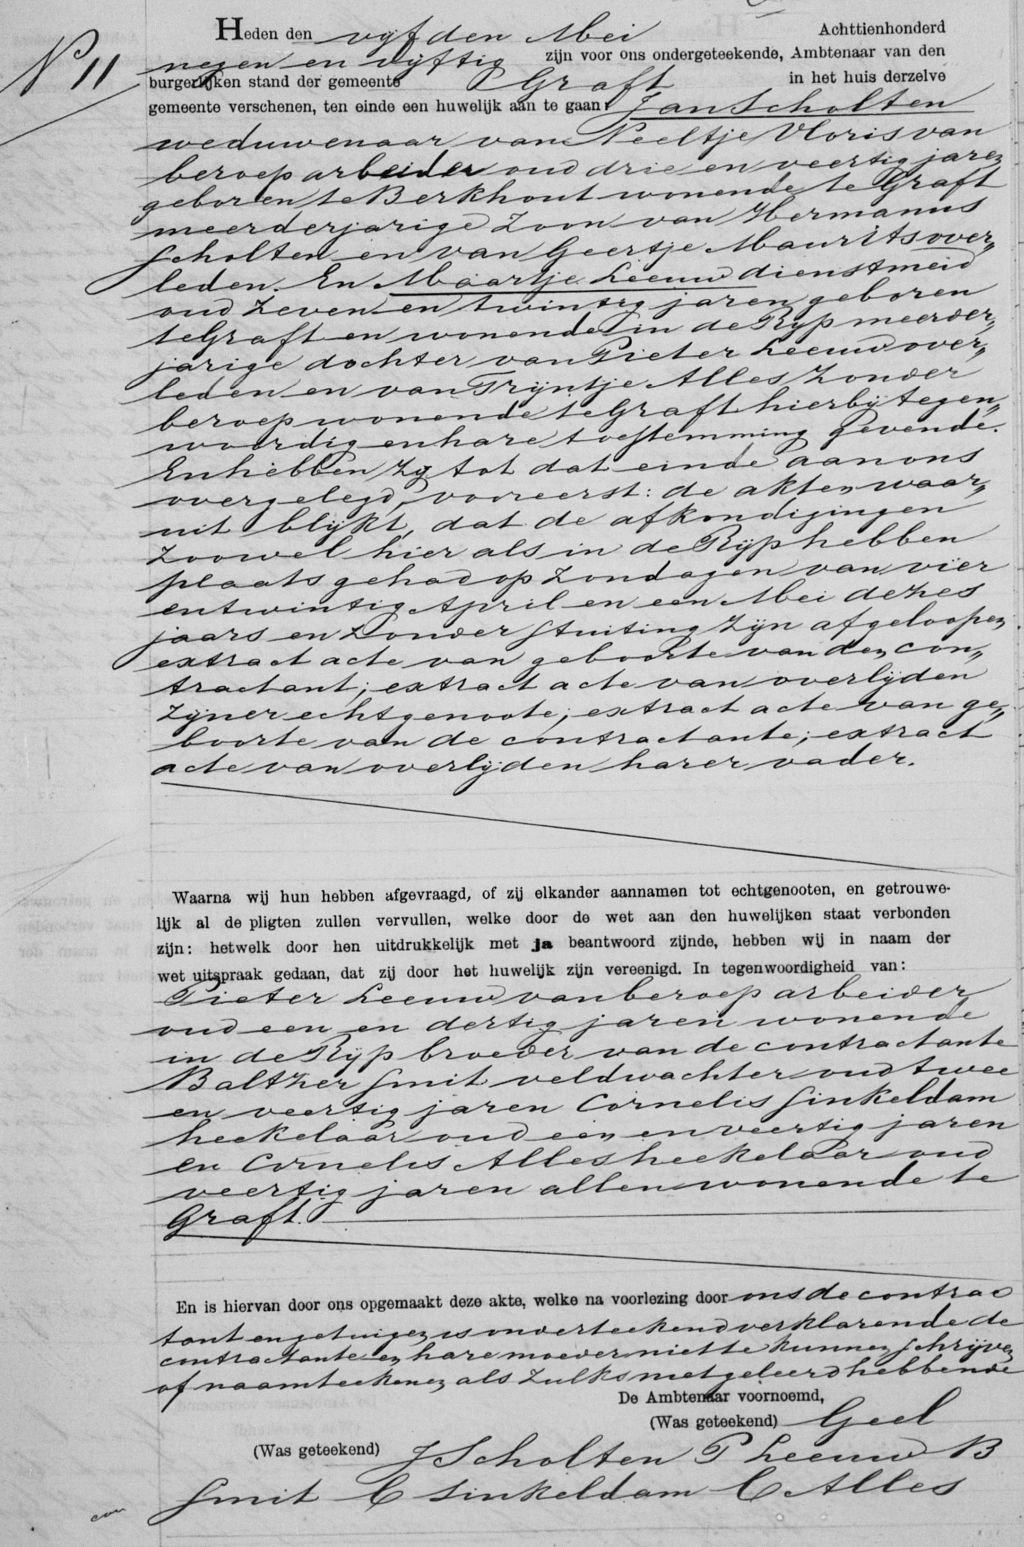 No 11
Heden den vyfden Mei Achttienhonderd
negen en vyftig zijn voor ons ondergeteekende, Ambtenaar van den
burgerlijken stand der gemeente Graft in het huis derzelve
gemeente verschenen, ten einde een huwelijk aan te gaan: Jan Scholten
weduwenaar van Neeltje Vloris van
beroep arbeider oud drie en veertig jaren
geboren te Berkhout wonende te Graft
meerderjarige Zoon van Hermanus
Scholten en van Geertje Maurits over„
leden. En Maartje Leeuw dienstmeid
oud Zeven en twintig jaren geboren
te Graft en wonende in de Ryp meerder„
jarige dochter van Pieter Leeuw over„
leden en van Tryntje Alles Zonder
beroep wonende te Graft hierbij tegen„
woordig en hare toestemming gevende.
En hebben Zy tot dat einde aan ons
overgelegd, vooreerst: de akten waar„
uit blykt, dat de afkondigingen
Zoowel hier als in de Ryp hebben
plaats gehad op Zondagen van vier
en twintig April en een Mei dezes
jaars en Zonder Stuiting Zyn afgeloopen
extract acte van geboorte van den con„
tractant; extract acte van overlyden
Zyner echtgenoote; extract acte van ge„
boorte van de contractante; extract
acte van overlijden harer vader.
Waarna wij hun hebben afgevraagd, of zij elkander aannamen tot echtgenooten, en getrouwe-
lijk al de pligten zullen vervullen, welke door de wet aan den huwelijken staat verbonden
zijn: hetwelk door hen uitdrukkelijk met ja beantwoord zijnde, hebben wij in naam der
wet uitspraak gedaan, dat zij door het huwelijk zijn vereenigd. In tegenwoordigheid van:
Pieter Leeuw van beroep arbeider
oud een en dertig jaren wonende
in de Ryp broeder van de contractante
Baltzer Smit veldwachter oud twee
en veertig jaren Cornelis Sinkeldam
heekelaar oud een en veertig jaren
en Cornelis Alles heekelaar oud
veertig jaren allen wonende te
Graft.
En is hiervan door ons opgemaakt deze akte, welke na voorlezing door ons de contrac
tant en getuigen is onderteekend verklarende de
contractante en hare moeder niet te kunnen schrijven
of naamteekenen als Zulks niet geleerd hebbende
De Ambtenaar voornoemd,
(Was geteekend) Geel
(Was geteekend) J Scholten P Leeuw B
Smit C Sinkeldam C Alles